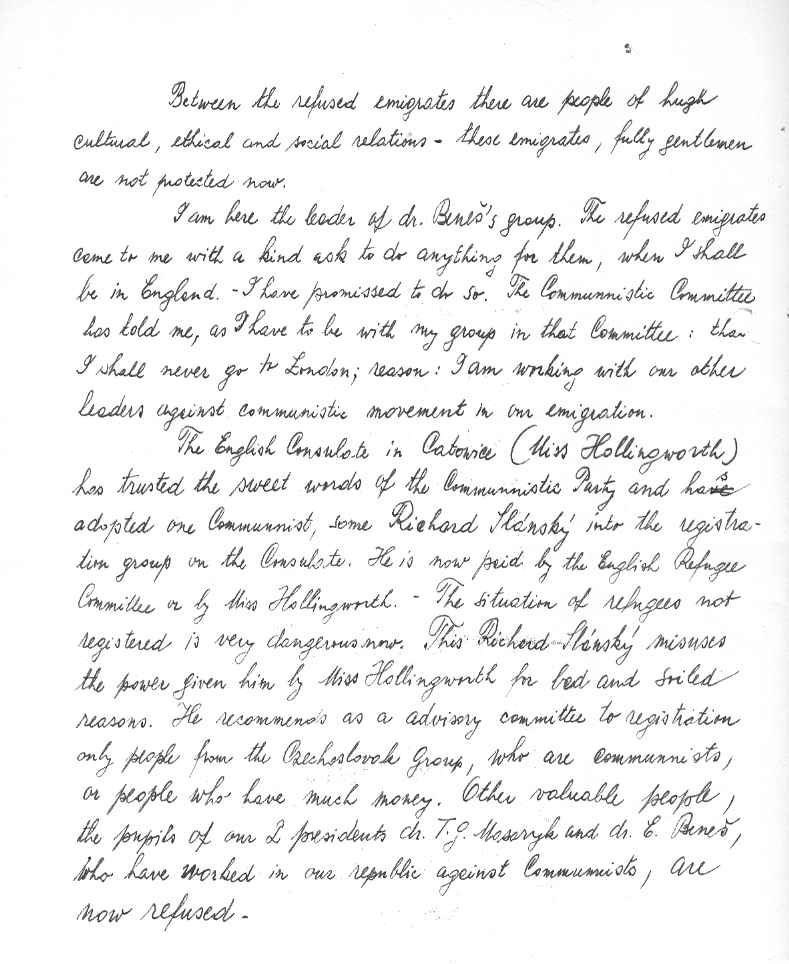 Between the refused emigrates there are people of hugh
cultural, ethical and social relations - these emigrates, fully gentlemen
are not protected now.
I am here the leader of dr. Beneš's group. The refused emigrates
come to me with a kind ask to do anything for them, when I shall
be in England. - I have promissed to do so. The Communnistic Committee
has told me, as I have to be with my group in that Committee : that
I shall never go to London; reason : I am working with our other
leaders against communistic movement in our emigration.
The English Consulate in Catowice (Miss Hollingworth)
has trusted the sweet words of the Communnistic Party and has
adopted one Communnist, some Richard Slánský into the registra-
tion group on the Consulate. He is now paid by the English Refugee
Committee or by Miss Hollingworth. - The situation of refugees not
registered is very dangerous now. This Richard Slánský misuses
the power given him by Miss Hollingworth for bad and soiled
reasons. He recommends as a advisory committee to registration
only people from the Czechoslovak Group, who are communnists,
or people who have much money. Other valuable people,
the pupils of our 2 presidents dr. T.G. Masaryk and dr. E. Beneš,
who have worked in our republic against Communnists, are
now refused -